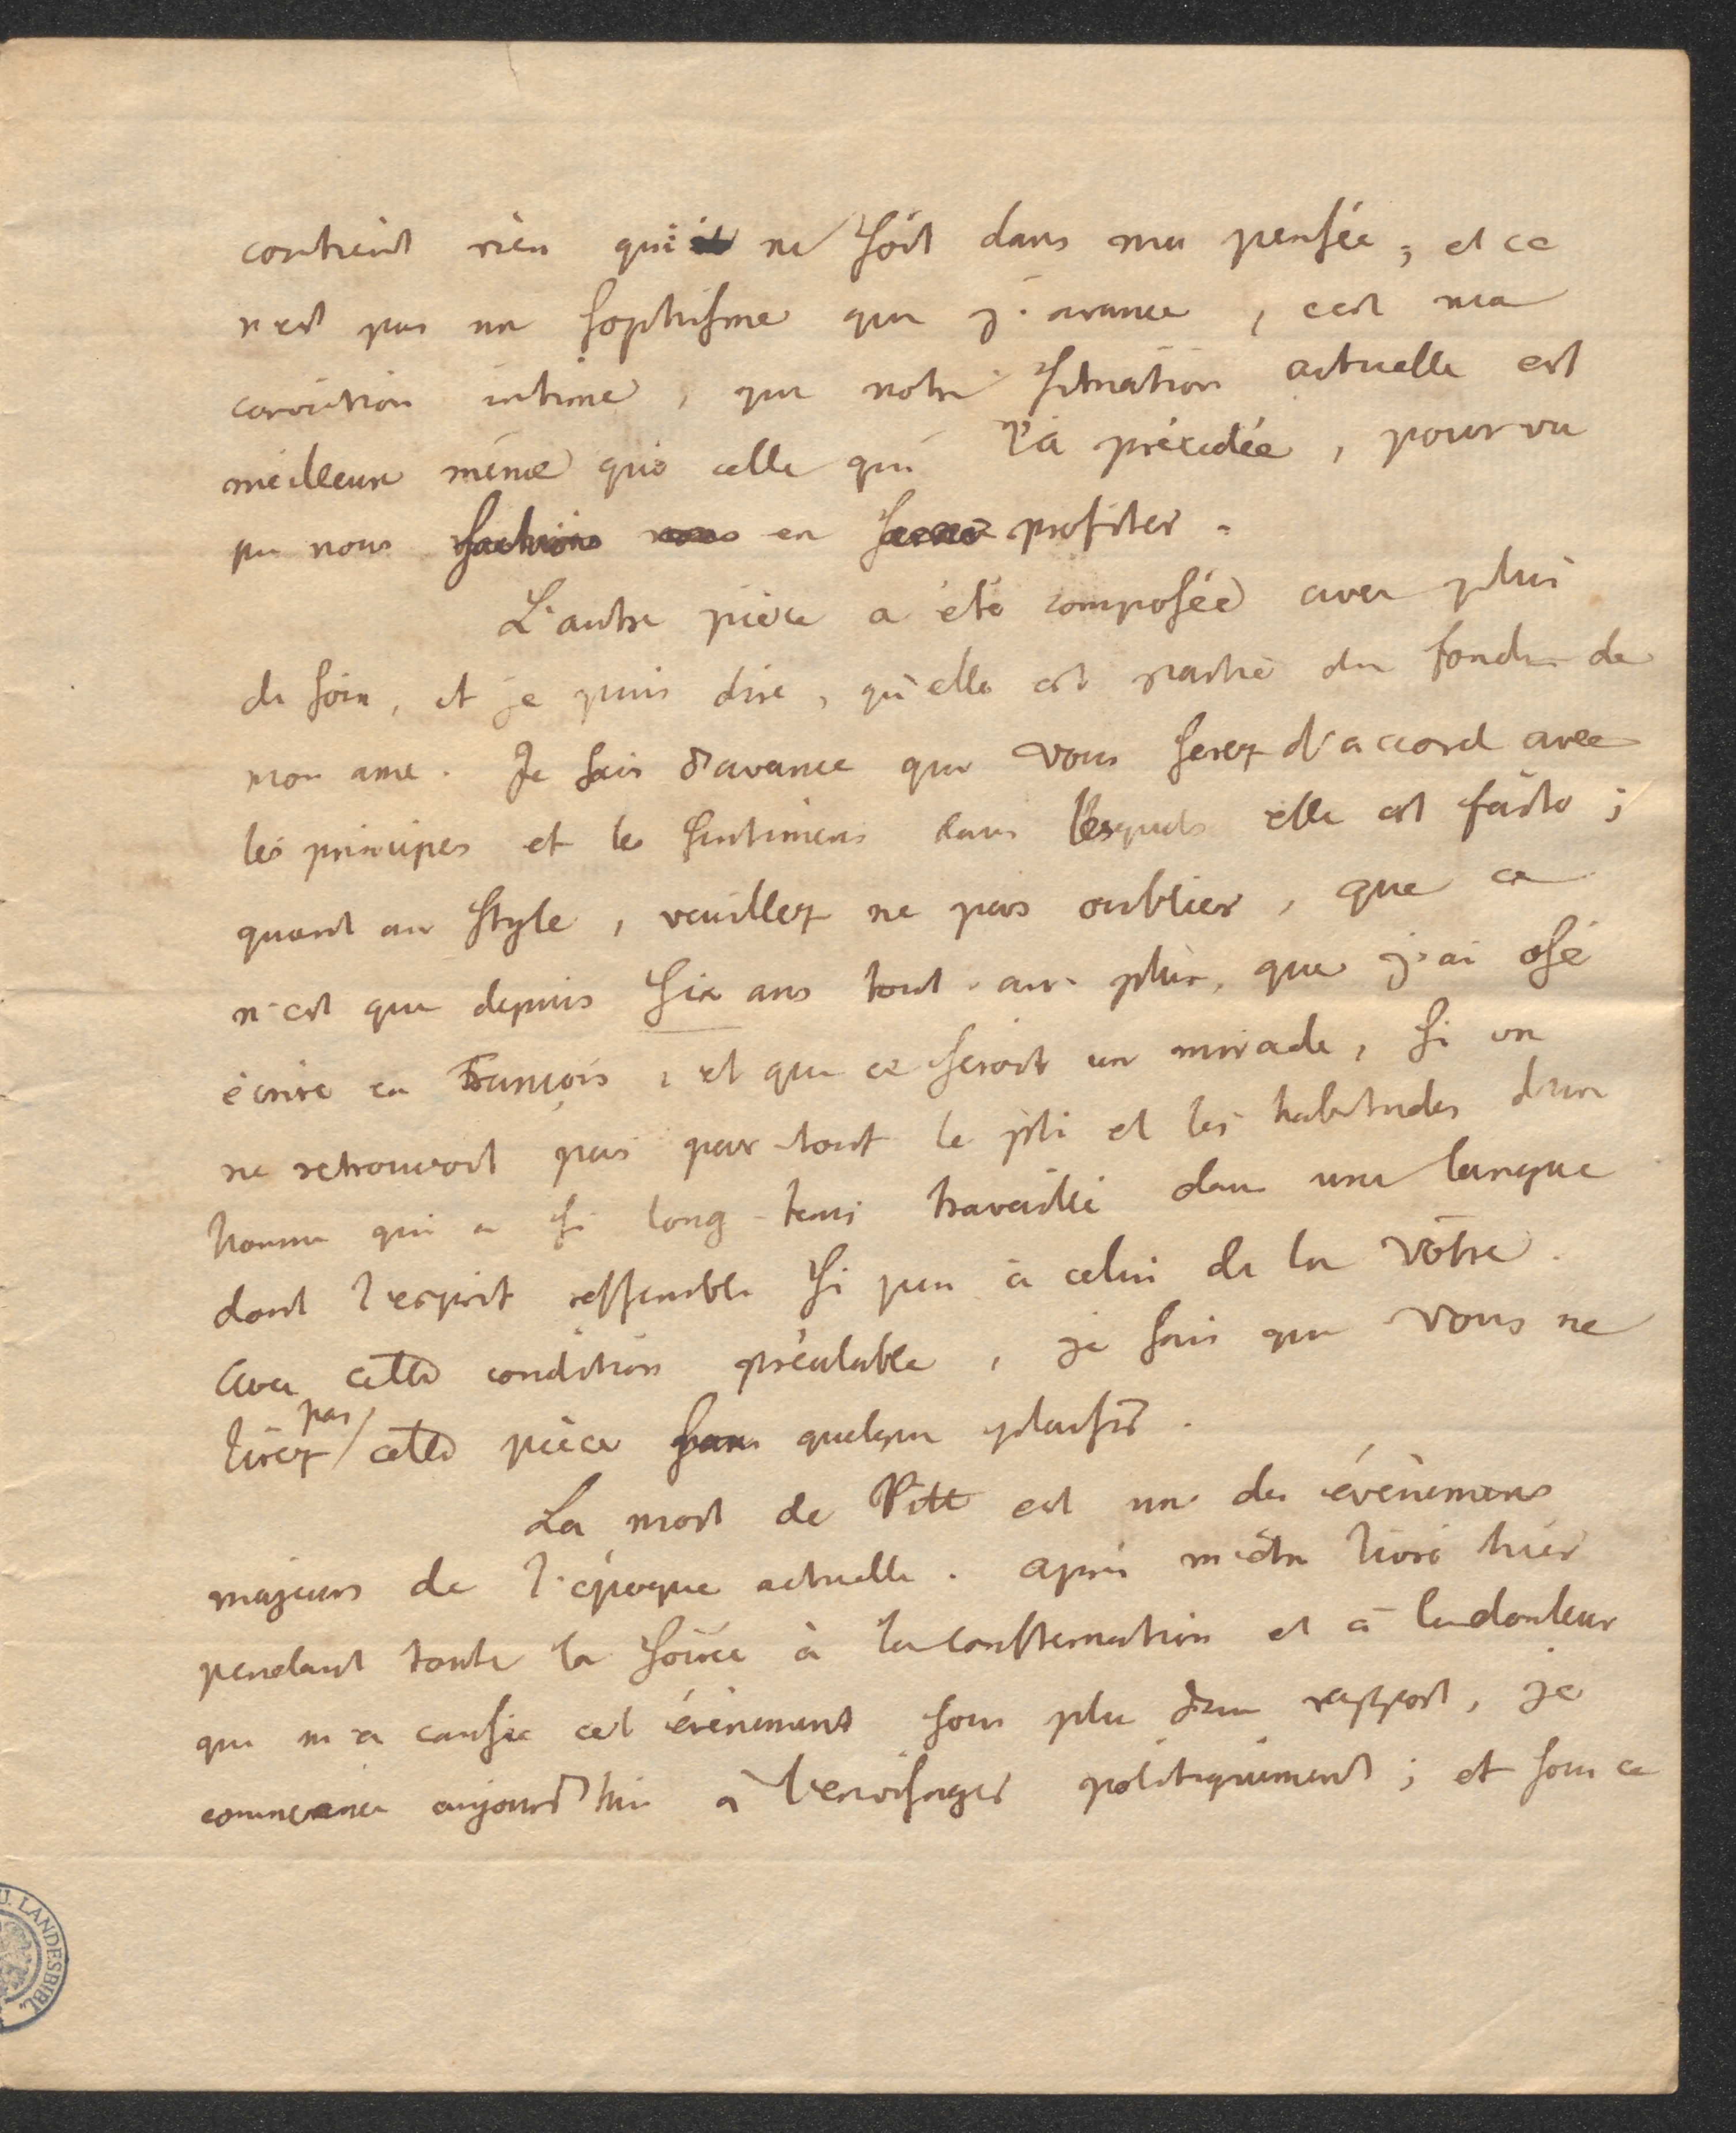 contient rien qui ne soit dans ma pensée; et ce
n'est pas un sophisme que j'avance, c'est ma
conviction intime, que notre situation actuelle est
meilleure même que celle qui l'a précédée, pourvu
que nous sachions nous en profiter.
L'autre pièce a été composée avec plus
de soin, et je puis dire, qu'elle est partie du fond de
mon ame. Je sais d'avance que vous serez d'accord avec
les principes et les sentimens dans lesquels elle est faite;
quant au style, veuillez ne pas oublier, que ce
n'est que depuis six ans tout-au-plus, que j'ai osé
écrire en François, et que ce seroit un miracle, si on
ne retrouvoit pas par-tout le pli et les habitudes d'un
homme qui a si long-tems travaillé dans une langue
dont l'esprit ressemble si peu à celui de la vôtre.
Avec cette condition préalable, je sais que vous ne
lirez pas cette pièce sans quelque plaisir.
La mort de Pitt est un des événemens
majeurs de l'époque actuelle. Après m'être livré hier
pendant toute la soirée à la consternation et à la douleur
que m'a causée cet événement sous plus d'un rapport, je
commence aujourd'hui à l'envisager politiquement; et sous ce
U. LANDESBIBL.